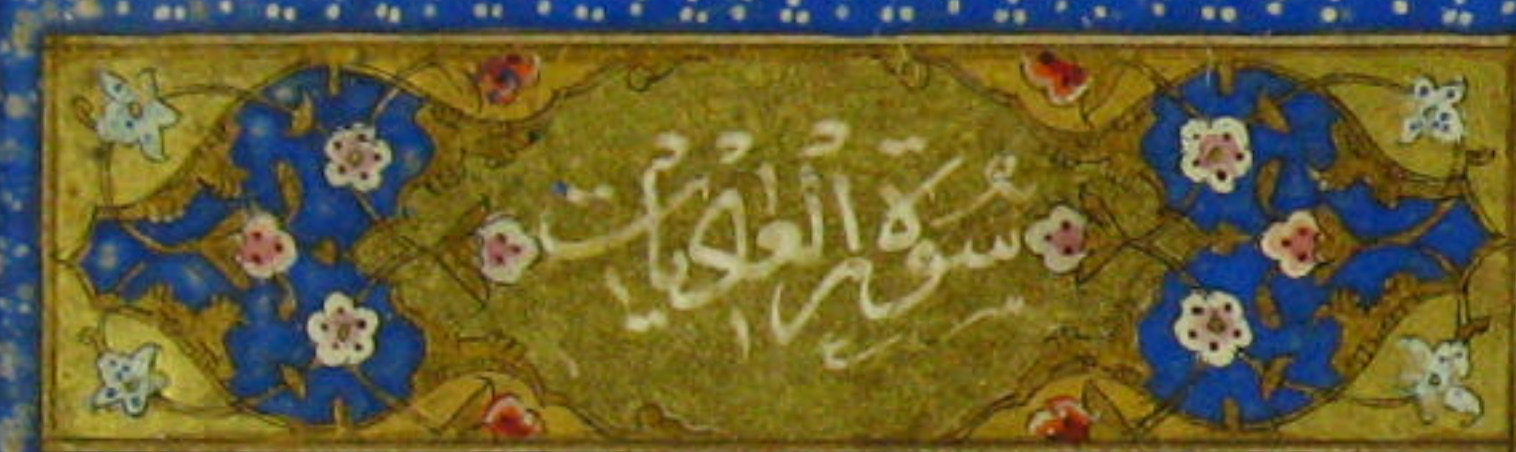 سورة العاديات